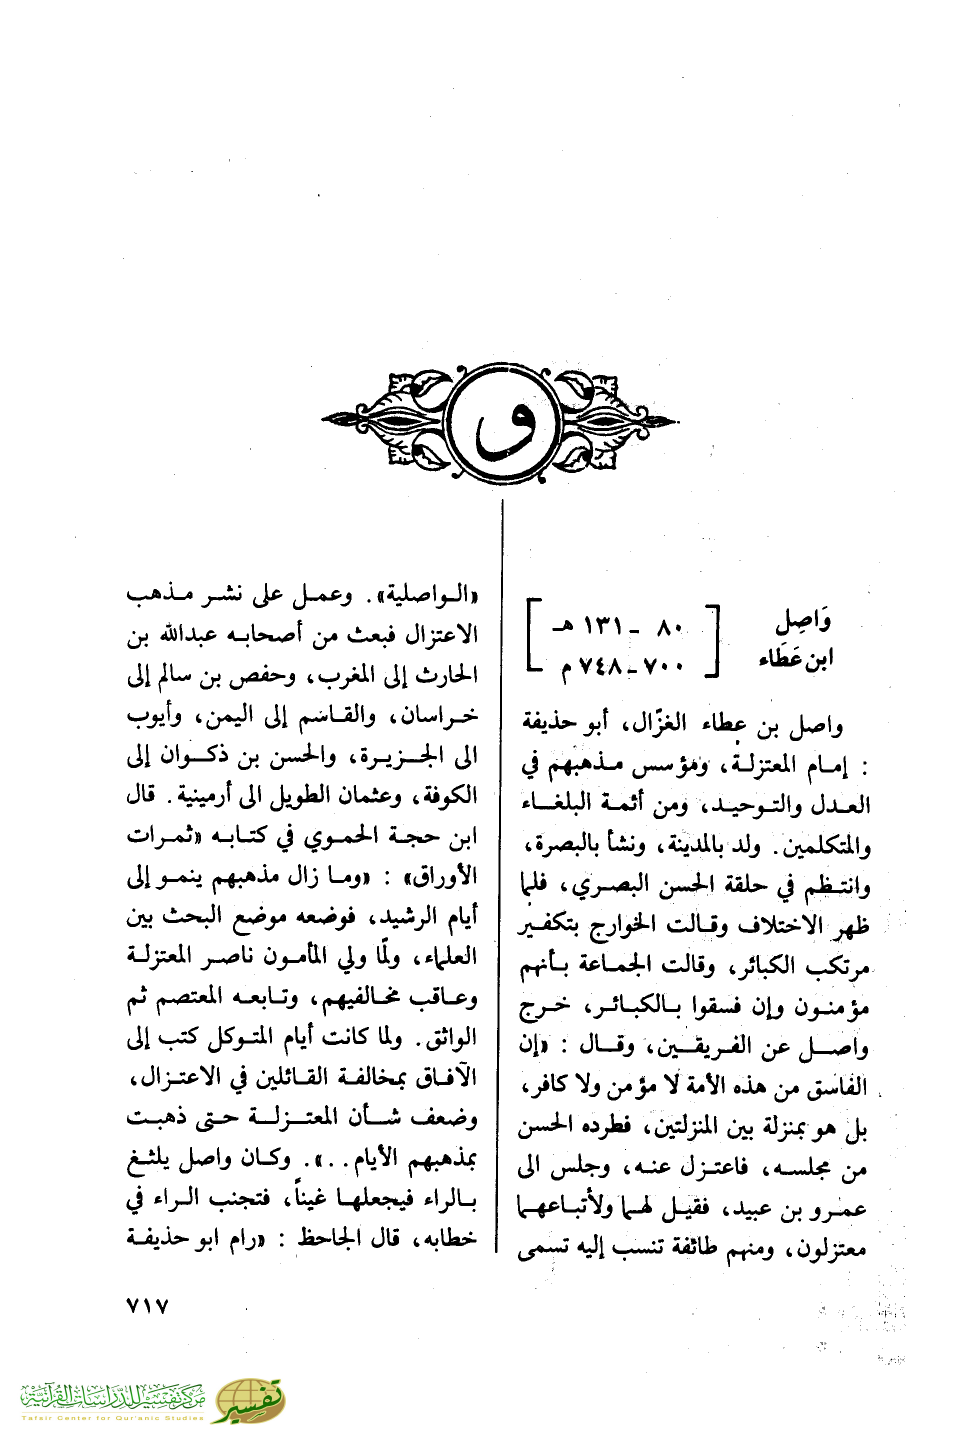 و
وَاصِل
ابن عَطَاء
[ ٨٠ ـ ١٣١ هـ
٧٠٠ ـ ٧٤٨ م ]
واصل بن عطاء الغزّال، أبو حذيفة
: إمام المعتزلة، ومؤسس مذهبهم في
العدل والتوحيد، ومن أئمة البلغاء
والمتكلمين. ولد بالمدينة، ونشأ بالبصرة،
وانتظم في حلقة الحسن البصري، فلما
ظهر الاختلاف وقالت الخوارج بتكفير
مرتكب الكبائر، وقالت الجماعة بأنهم
مؤمنون وإن فسقوا بالكبائر، خرج
واصل عن الفريقين، وقال : «إن
الفاسق من هذه الأمة لا مؤمن ولا كافر،
بل هو بمنزلة بين المنزلتين، فطرده الحسن
من مجلسه، فاعتزل عنه، وجلس الى
عمرو بن عبيد، فقيل لهما ولأتباعهما
معتزلون، ومنهم طائفة تنسب إليه تسمى
«الواصلية». وعمل على نشر مذهب
الاعتزال فبعث من أصحابه عبدالله بن
الحارث إلى المغرب، وحفص بن سالم إلى
خراسان، والقاسم إلى اليمن، وأيوب
الى الجزيرة، والحسن بن ذكوان إلى
الكوفة، وعثمان الطويل الى أرمينية. قال
ابن حجة الحموي في كتابه «ثمرات
الأوراق» : «وما زال مذهبهم ينمو إلى
أيام الرشيد، فوضعه موضع البحث بين
العلماء، ولمّا ولي المأمون ناصر المعتزلة
وعاقب مخالفيهم، وتابعه المعتصم ثم
الواثق. ولما كانت أيام المتوكل كتب إلى
الآفاق بمخالفة القائلين في الاعتزال،
وضعف شأن المعتزلة حتى ذهبت
بمذهبهم الأيام..». وكان واصل يلثغ
بالراء فيجعلها غيناً، فتجنب الراء في
خطابه، قال الجاحظ : «رام ابو حذيفة
٧١٧
مركز تفسير للدراسات القرآنية
Tafsir Center for Qur'anic Studies
تفسير